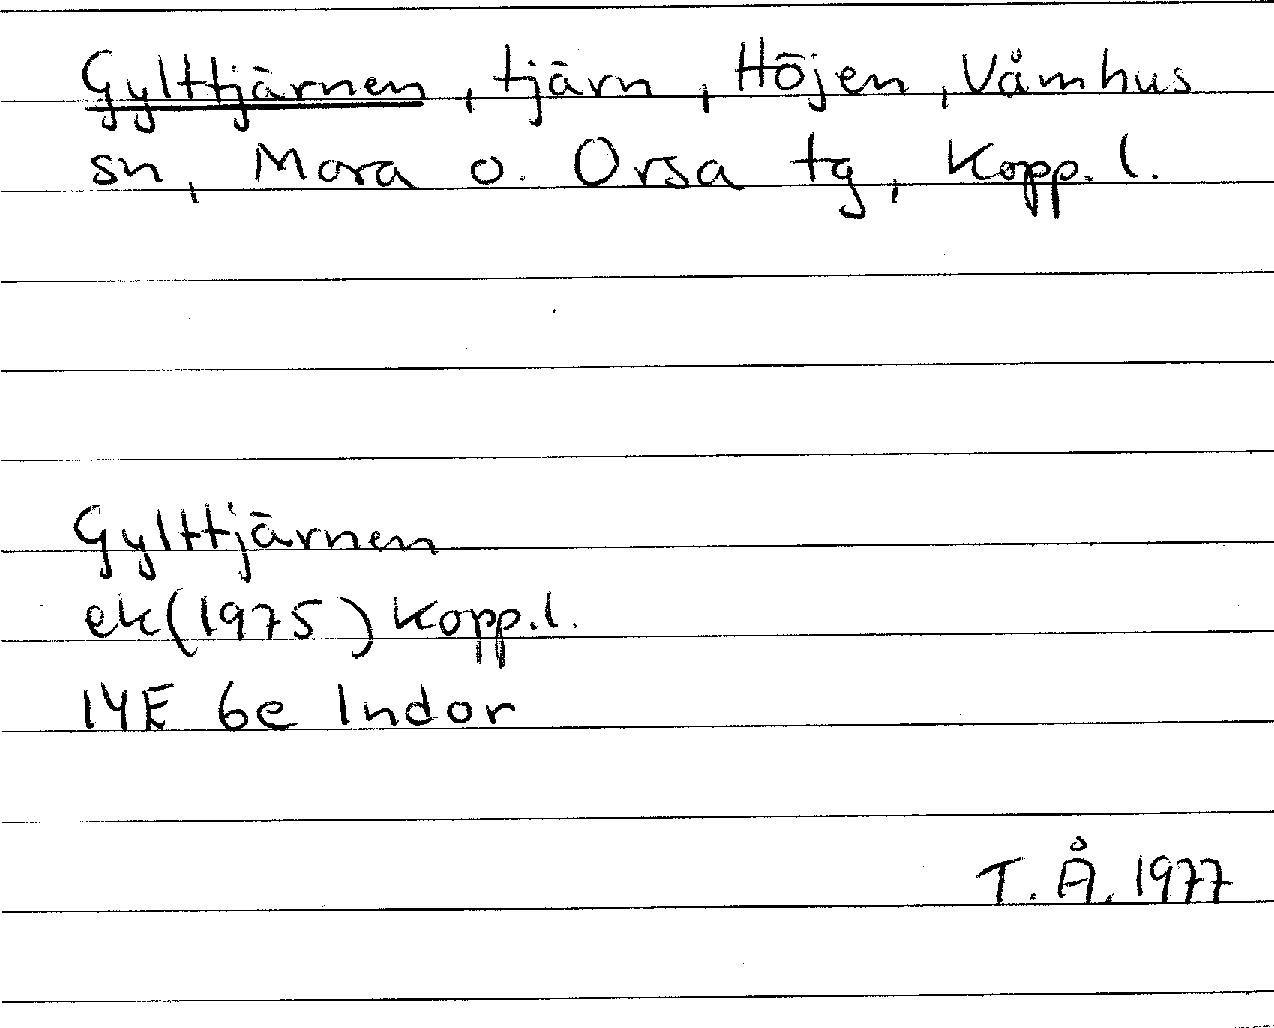 Gylttjärnen, tjärn, Höjen, Våmhus
sn, Mora o. Orsa tg, Kopp. l.
Gylttjärnen
ek(1975) Kopp.l.
14E 6e Indor
T.Å. 1977